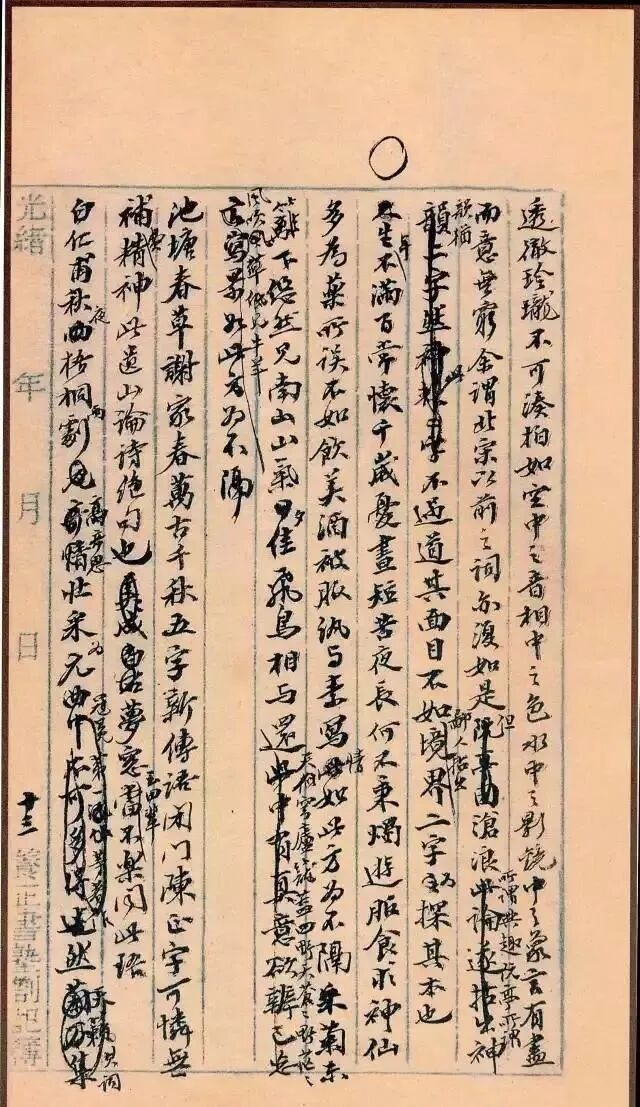 透徹玲瓏不可湊拍如空中之音相中之色水中之影鏡中之象言有盡
而意無窮余謂北宋以前之詞亦復如是但滄浪所謂興趣阮亭所謂神
韻猶不過道其面目不如鄙人拈出境界二字為探其本也
生年不滿百常懷千歲憂晝短苦夜長何不秉燭遊服食求神仙
多為藥所誤不如飲美酒被服紈與素寫情如此方為不隔采菊東
籬下悠然見南山山氣日夕佳飛鳥相與還天似穹廬籠蓋四野天蒼蒼野茫茫
風吹草低見牛羊寫景如此方為不隔
池塘春草謝家春萬古千秋五字新傳語閉門陳正字可憐無
補費精神此遺山論詩絕句也夢窗玉田輩當不樂聞此語
白仁甫秋夜梧桐雨劇沈雄悲壯為元曲冠冕然天籟詞
光緒 年 月 日
十三
養正書塾劄記簿